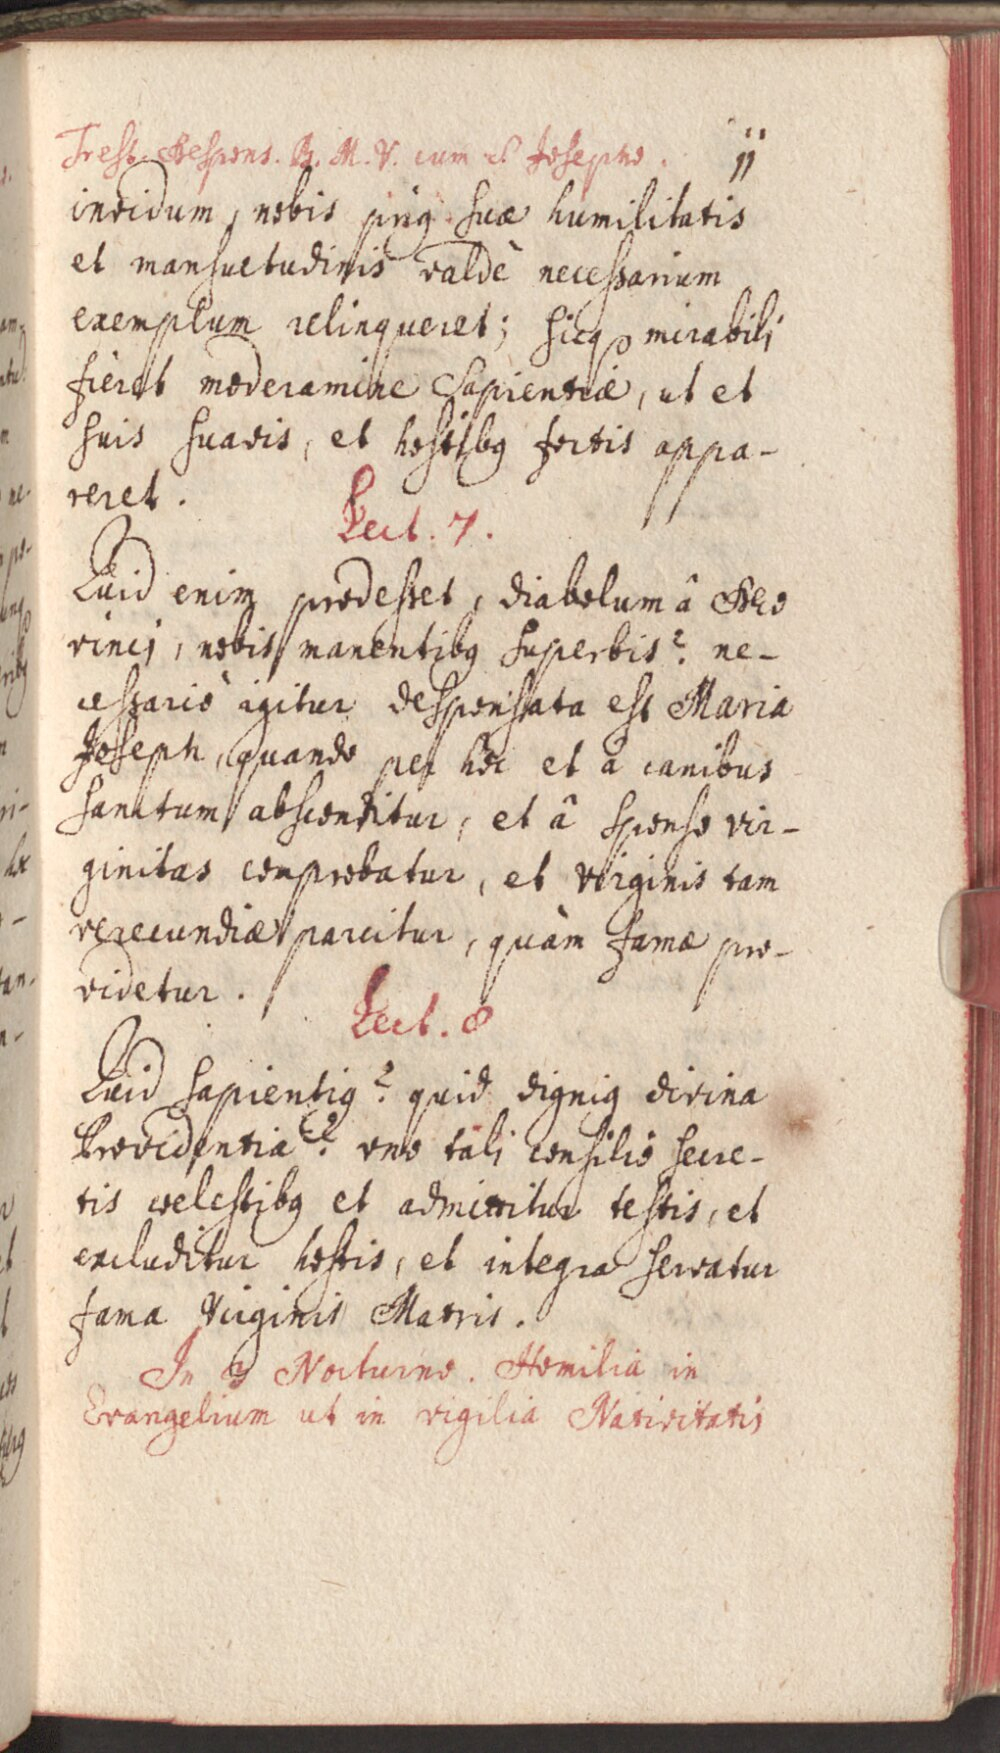 Fest. Despons. B. M. V. cum S. Josepho. 11
invidum, nobis prig suæ humilitatis
et mansuetudinis valdè necessarium
exemplum relinqueret; sicq mirabili
fieret moderamine Sapientiæ, ut et
suis suavis, et hostibg fortis appa-
reret.
Lect. 7.
Quid enim prodesset, diabolum â Deo
vinci, nobis manentibg superbis? ne-
cessariò igitur desponsata est Maria
Joseph, quando per hoc et â canibus
sanctum absconditur, et â sponso vir-
ginitas comprobatur, et virginis tam
verecundiæ parcitur, quàm famæ pro-
videtur.
Lect. 8
Quid sapientig? quid dignig divina
Providentia? uno tali consilio secre-
tis coelestibg et admittitur testis, et
excluditur hostis, et integra servatur
fama Virginis Matris.
In 3 Nocturno. Homilia in
Evangelium ut in vigilia Nativitatis